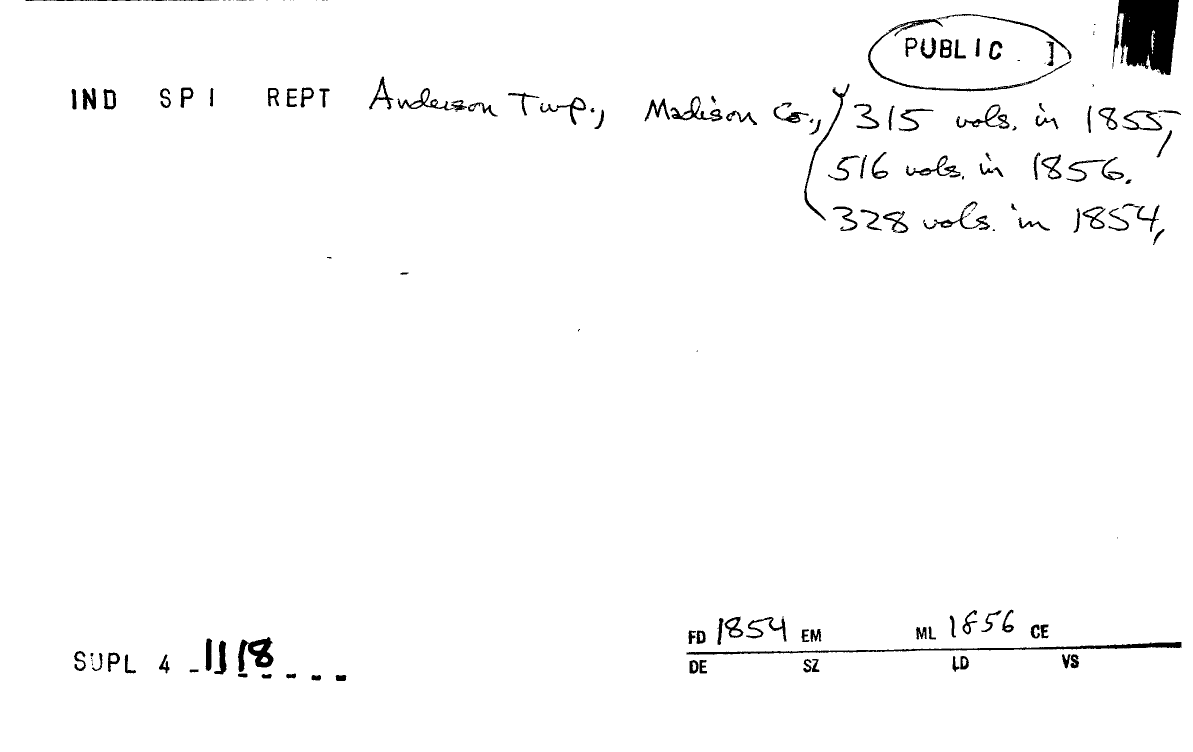 PUBLIC I
IND SPI REPT Anderson Twp., Madison Co., 315 vols. in 1855,
516 vols. in 1856.
328 vols. in 1854,
FD 1854 EM ML 1856 CE
SUPL 4 1118
DE SZ LD VS